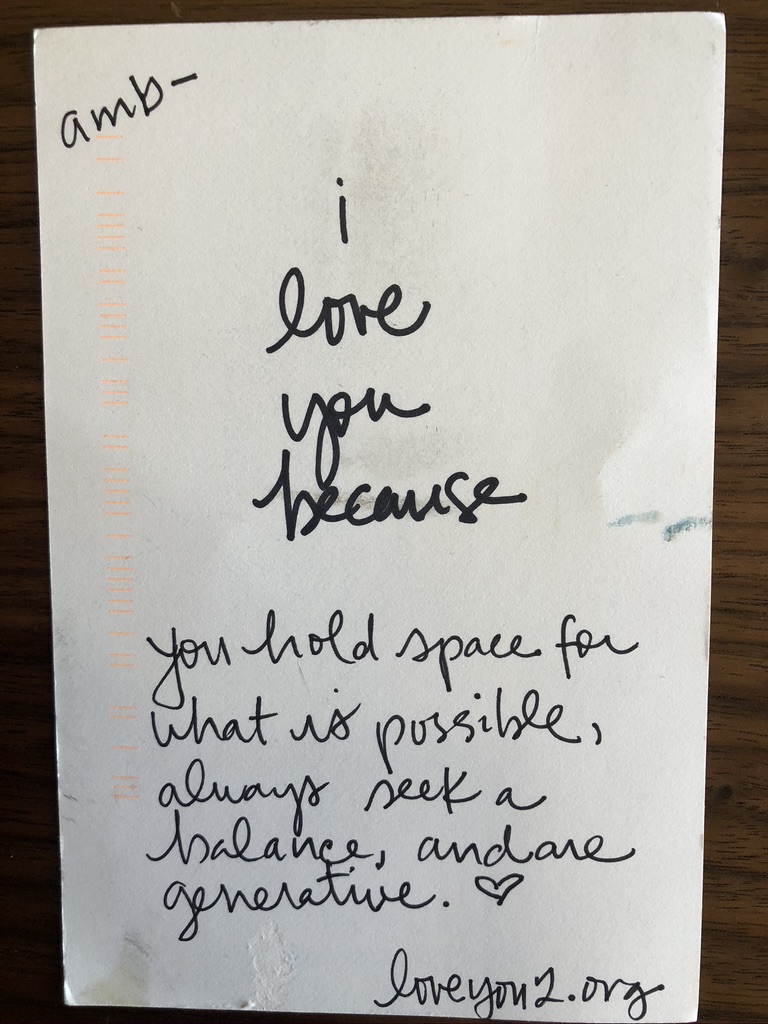 amb-
i
love
you
because
you hold space for
what is possible,
always seek a
balance, and are
generative. ♡
loveyou2.org